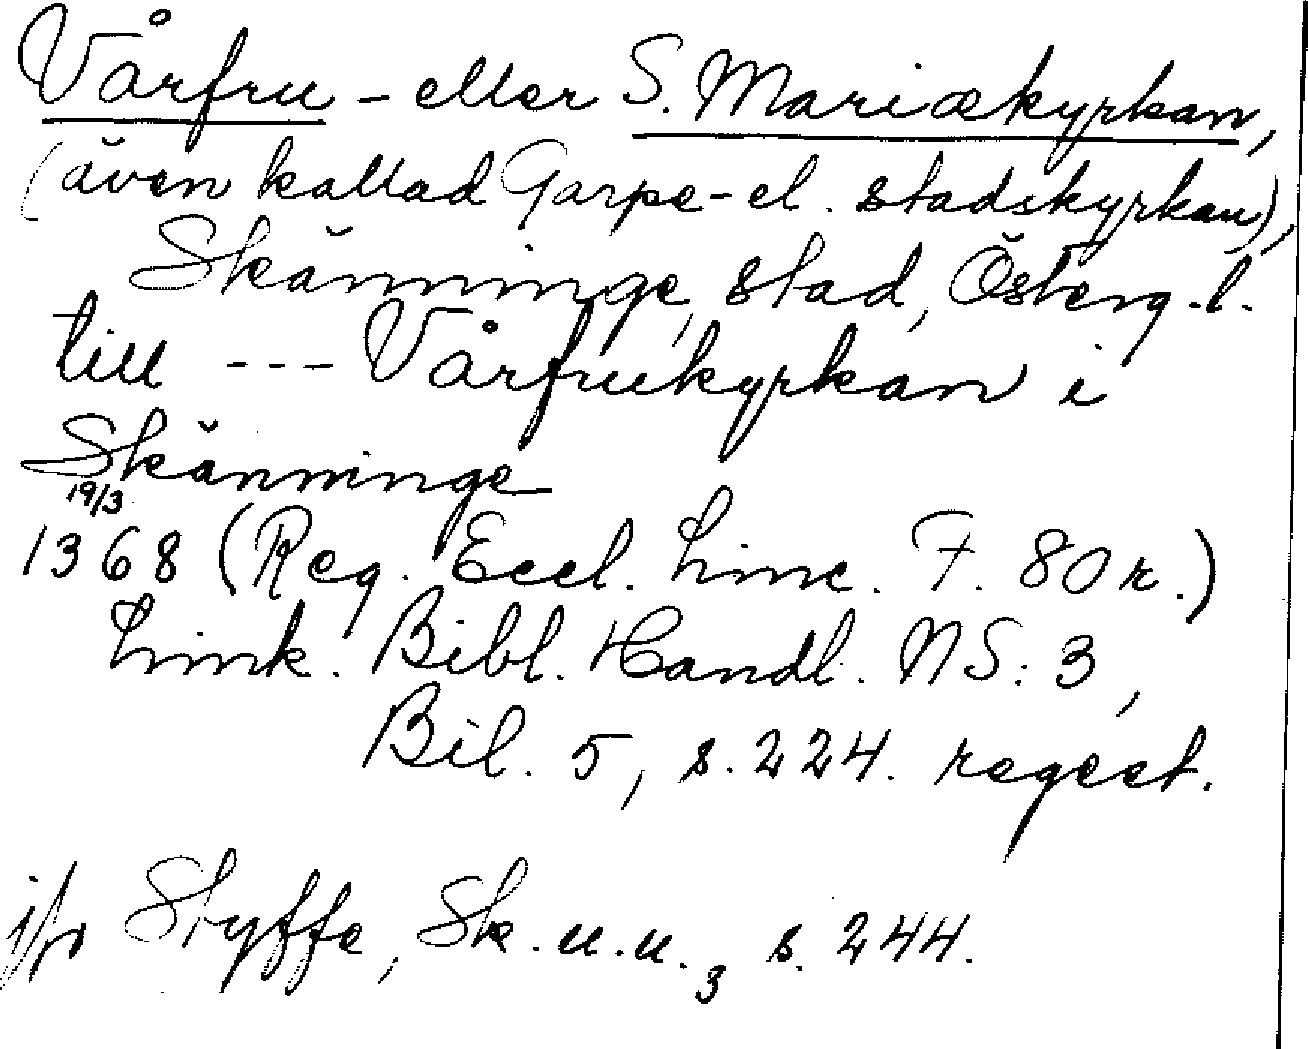 Vårfru - eller S. Mariækyrkan,
(även kallad Garpe- el. stadskyrkan),
Skänninge, stad, Österg.l.
till --- Vårfrukyrkan i
Skänninge
19/3
1368 (Reg. Eccl. Linc. F. 80 r.)
Link. Bibl. Handl. NS: 3,
Bil. 5, s. 224. regest.
jfr Styffe, Sk. u. u.3 s. 244.